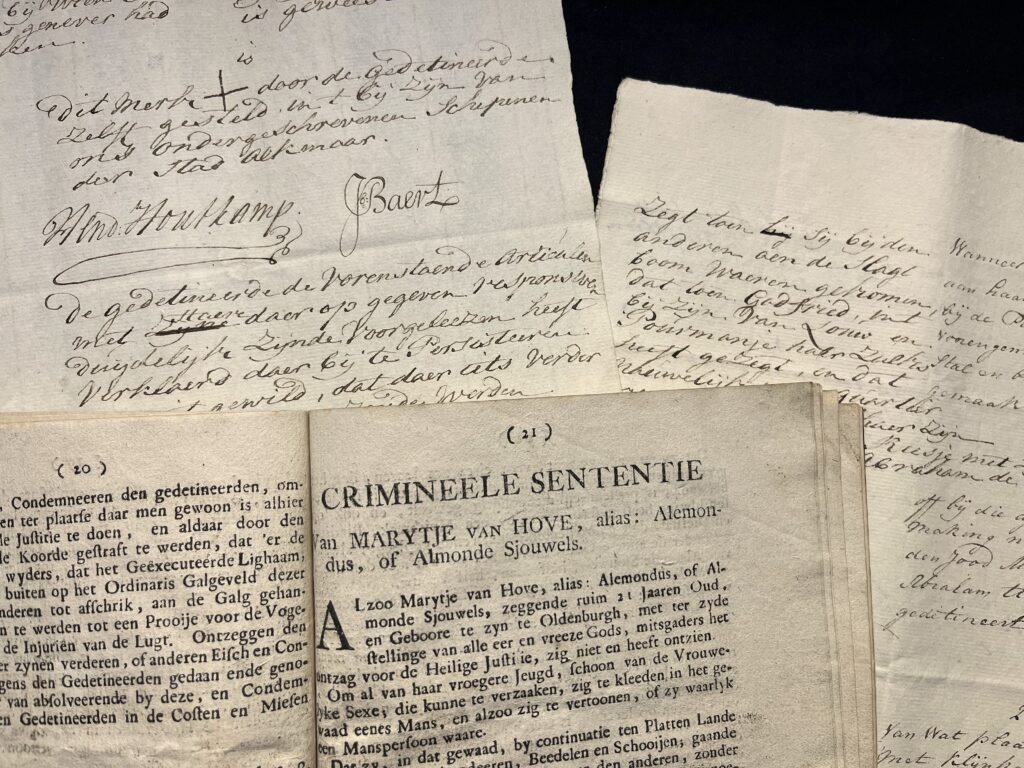 is genever had
ken.
is geweest
is
Dit Merk + door de gedetineerde
Zelfs gesteld in 't bij Zijn van
ons ondergeschrevenen Schepenen
der Stad Alkmaar.
Hend: Houtkamp.
JBaert
De gedetineerde de vorenstaende Articulen
met daer op gegeven responsiven
duijdelijk Zijnde voorgeleezen heeft
verklaerd daer bij te Persisteeren
gewild, dat daer iets verder
worden
Zegt toen sij bijden
anderen aen de Slagt
boom Waeren gekomen,
dat toen Godfried, in 't
bij Zijn van Louw en
Pourmanje haer Zulks
heeft gezegt, en dat
quartier
haer Zijn
Rusje met
Abraham de
Wanneer
aan haar
bij de
gemaakt
off bij die
making
den Jood
Abraham
gedetineert
Van Wat plaa
met
( 20 )
, Condemneeren den gedetineerden, om-
en ter plaatse daar men gewoon is alhier
le Justitie te doen, en aldaar door den
le Koorde gestraft te werden, dat 'er de
wyders, dat het Geëxecuteerde Lighaam,
buiten op het Ordinaris Galgeveld dezer
nderen tot affschrik, aan de Galg gehan-
n te werden tot een Prooije voor de Voge-
de Injuriën van de Lugt. Ontzeggen den
er zynen verderen, of anderen Eisch en Con-
gens den Gedetineerden gedaan ende geno-
van absolveerende by deze, en Condem-
en Gedetineerden in de Costen en Miesen
( 21 )
CRIMINEELE SENTENTIE
Van MARYTJE VAN HOVE, alias: Alemon-
dus, of Almonde Sjouwels.
ALzoo Marytje van Hove, alias: Alemondus, of Al-
monde Sjouwels, zeggende ruim 21 Jaaren Oud,
en Geboore te zyn te Oldenburgh, met ter zyde
stellinge van alle eer en vreeze Gods, mitsgaders het
ontzag voor de Heilige Justitie, zig niet en heeft ontzien.
Om al van haar vroegere Jeugd, schoon van de Vrouwe-
lyke Sexe, die kunne te verzaaken, zig te kleeden in het ge-
waad eenes Mans, en alzoo zig te vertoonen, of zy waarlyk
een Manspersoon waare.
Dat zy, in dat gewaad, by continuatie ten Platten Lande
Beedelen en Schooijen; gaande
den anderen, zonder